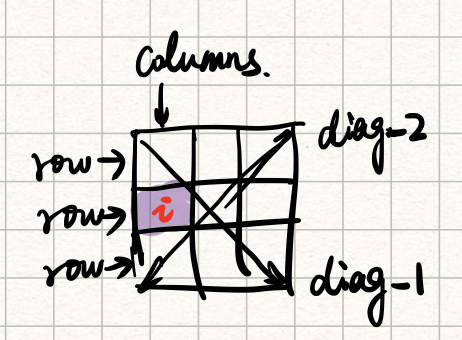 columns.
diag-2
row
row
i
row
diag-1